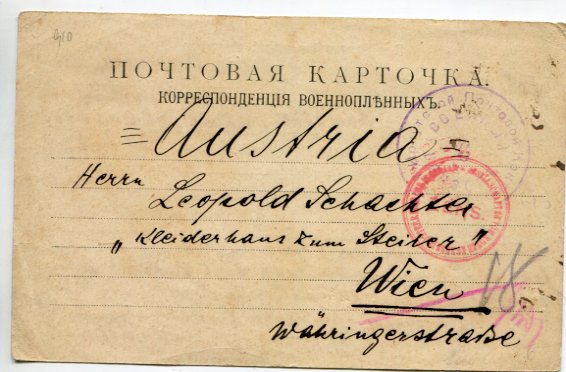 ПОЧТОВАЯ КАРТОЧКА.
КОРРЕСПОНДЕНЦІЯ ВОЕННОПЛѢННЫХЪ.
= Austria =
Herrn Leopold Schachtel
„Kleiderhaus zum Steirer"
Wien
Währingerstraße